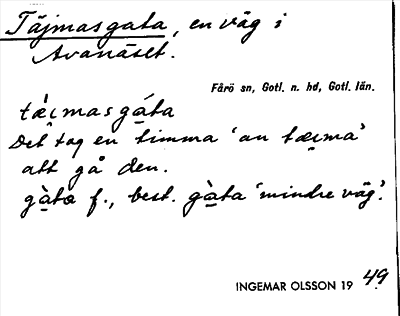 Täjmasgata, en väg i
Avanäset.
Fårö sn, Gotl. n. hd, Gotl. län.
tæ̀i̯masgá̱ta
Det tog en timma 'an tæi̯ma'
att gå den.
gà̱ta f., best. gà̱ta 'mindre väg'.
INGEMAR OLSSON 19 49